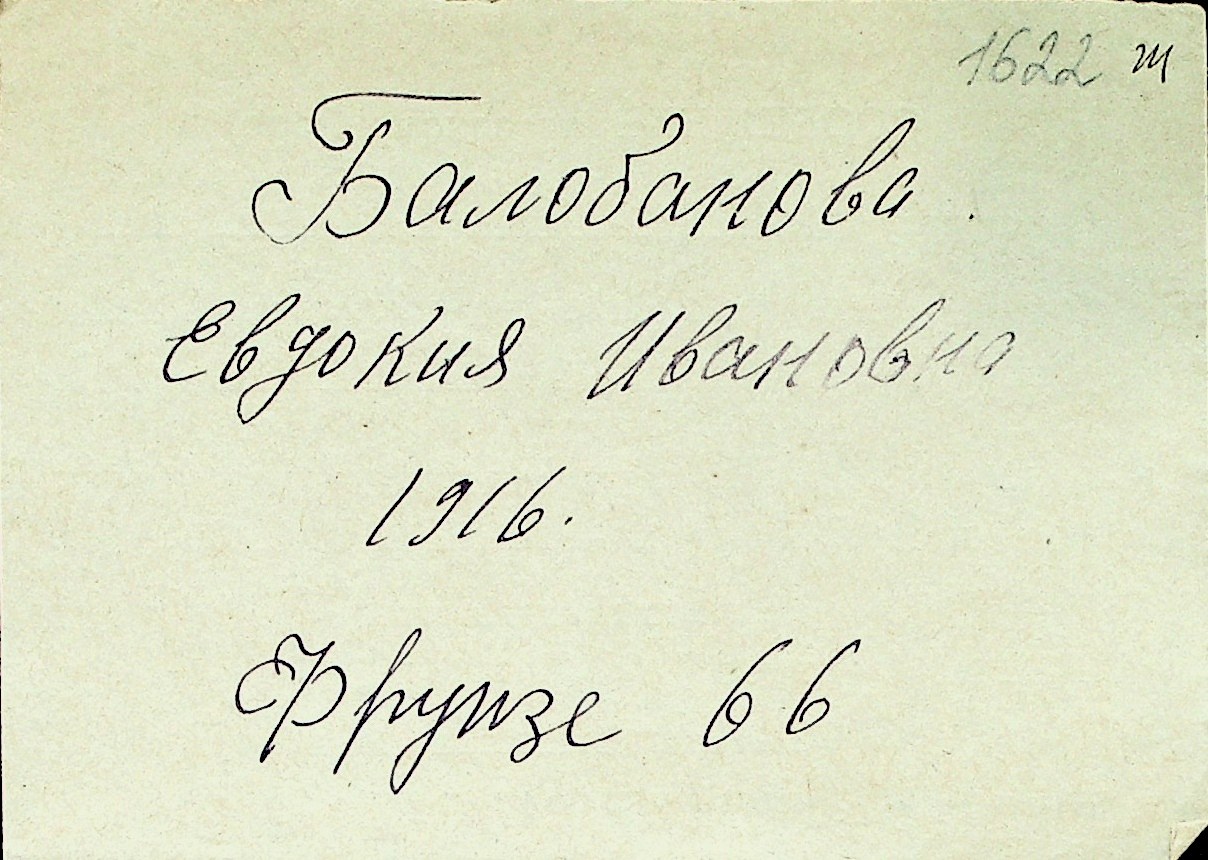 1622 т
Балобанова
Евдокия Ивановна
1916.
Фрунзе 66